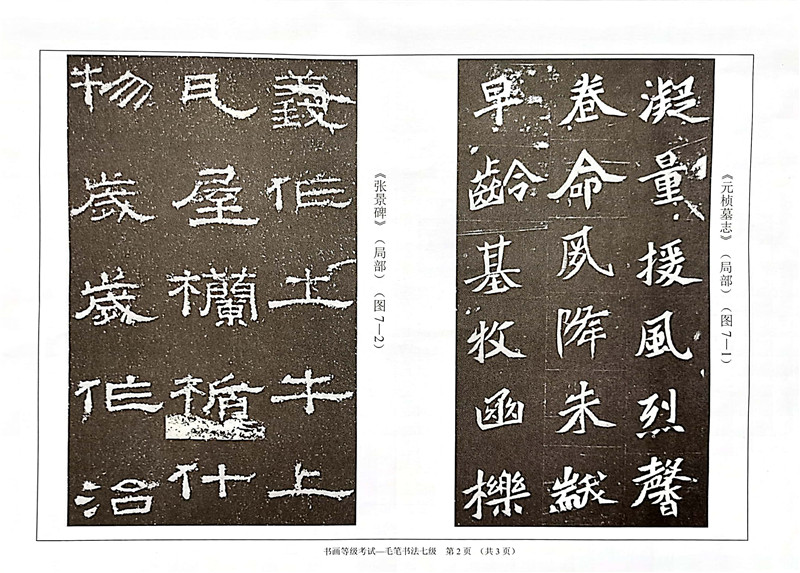 《元桢墓志》（局部）（图 7—1）
凝量援風烈馨
眷命夙降朱黻
早齡基牧幽櫟
《张景碑》（局部）（图 7—2）
義作土牛上
瓦屋欄楯什
物歲歲作治
书画等级考试—毛笔书法七级 第 2 页 （共 3 页）